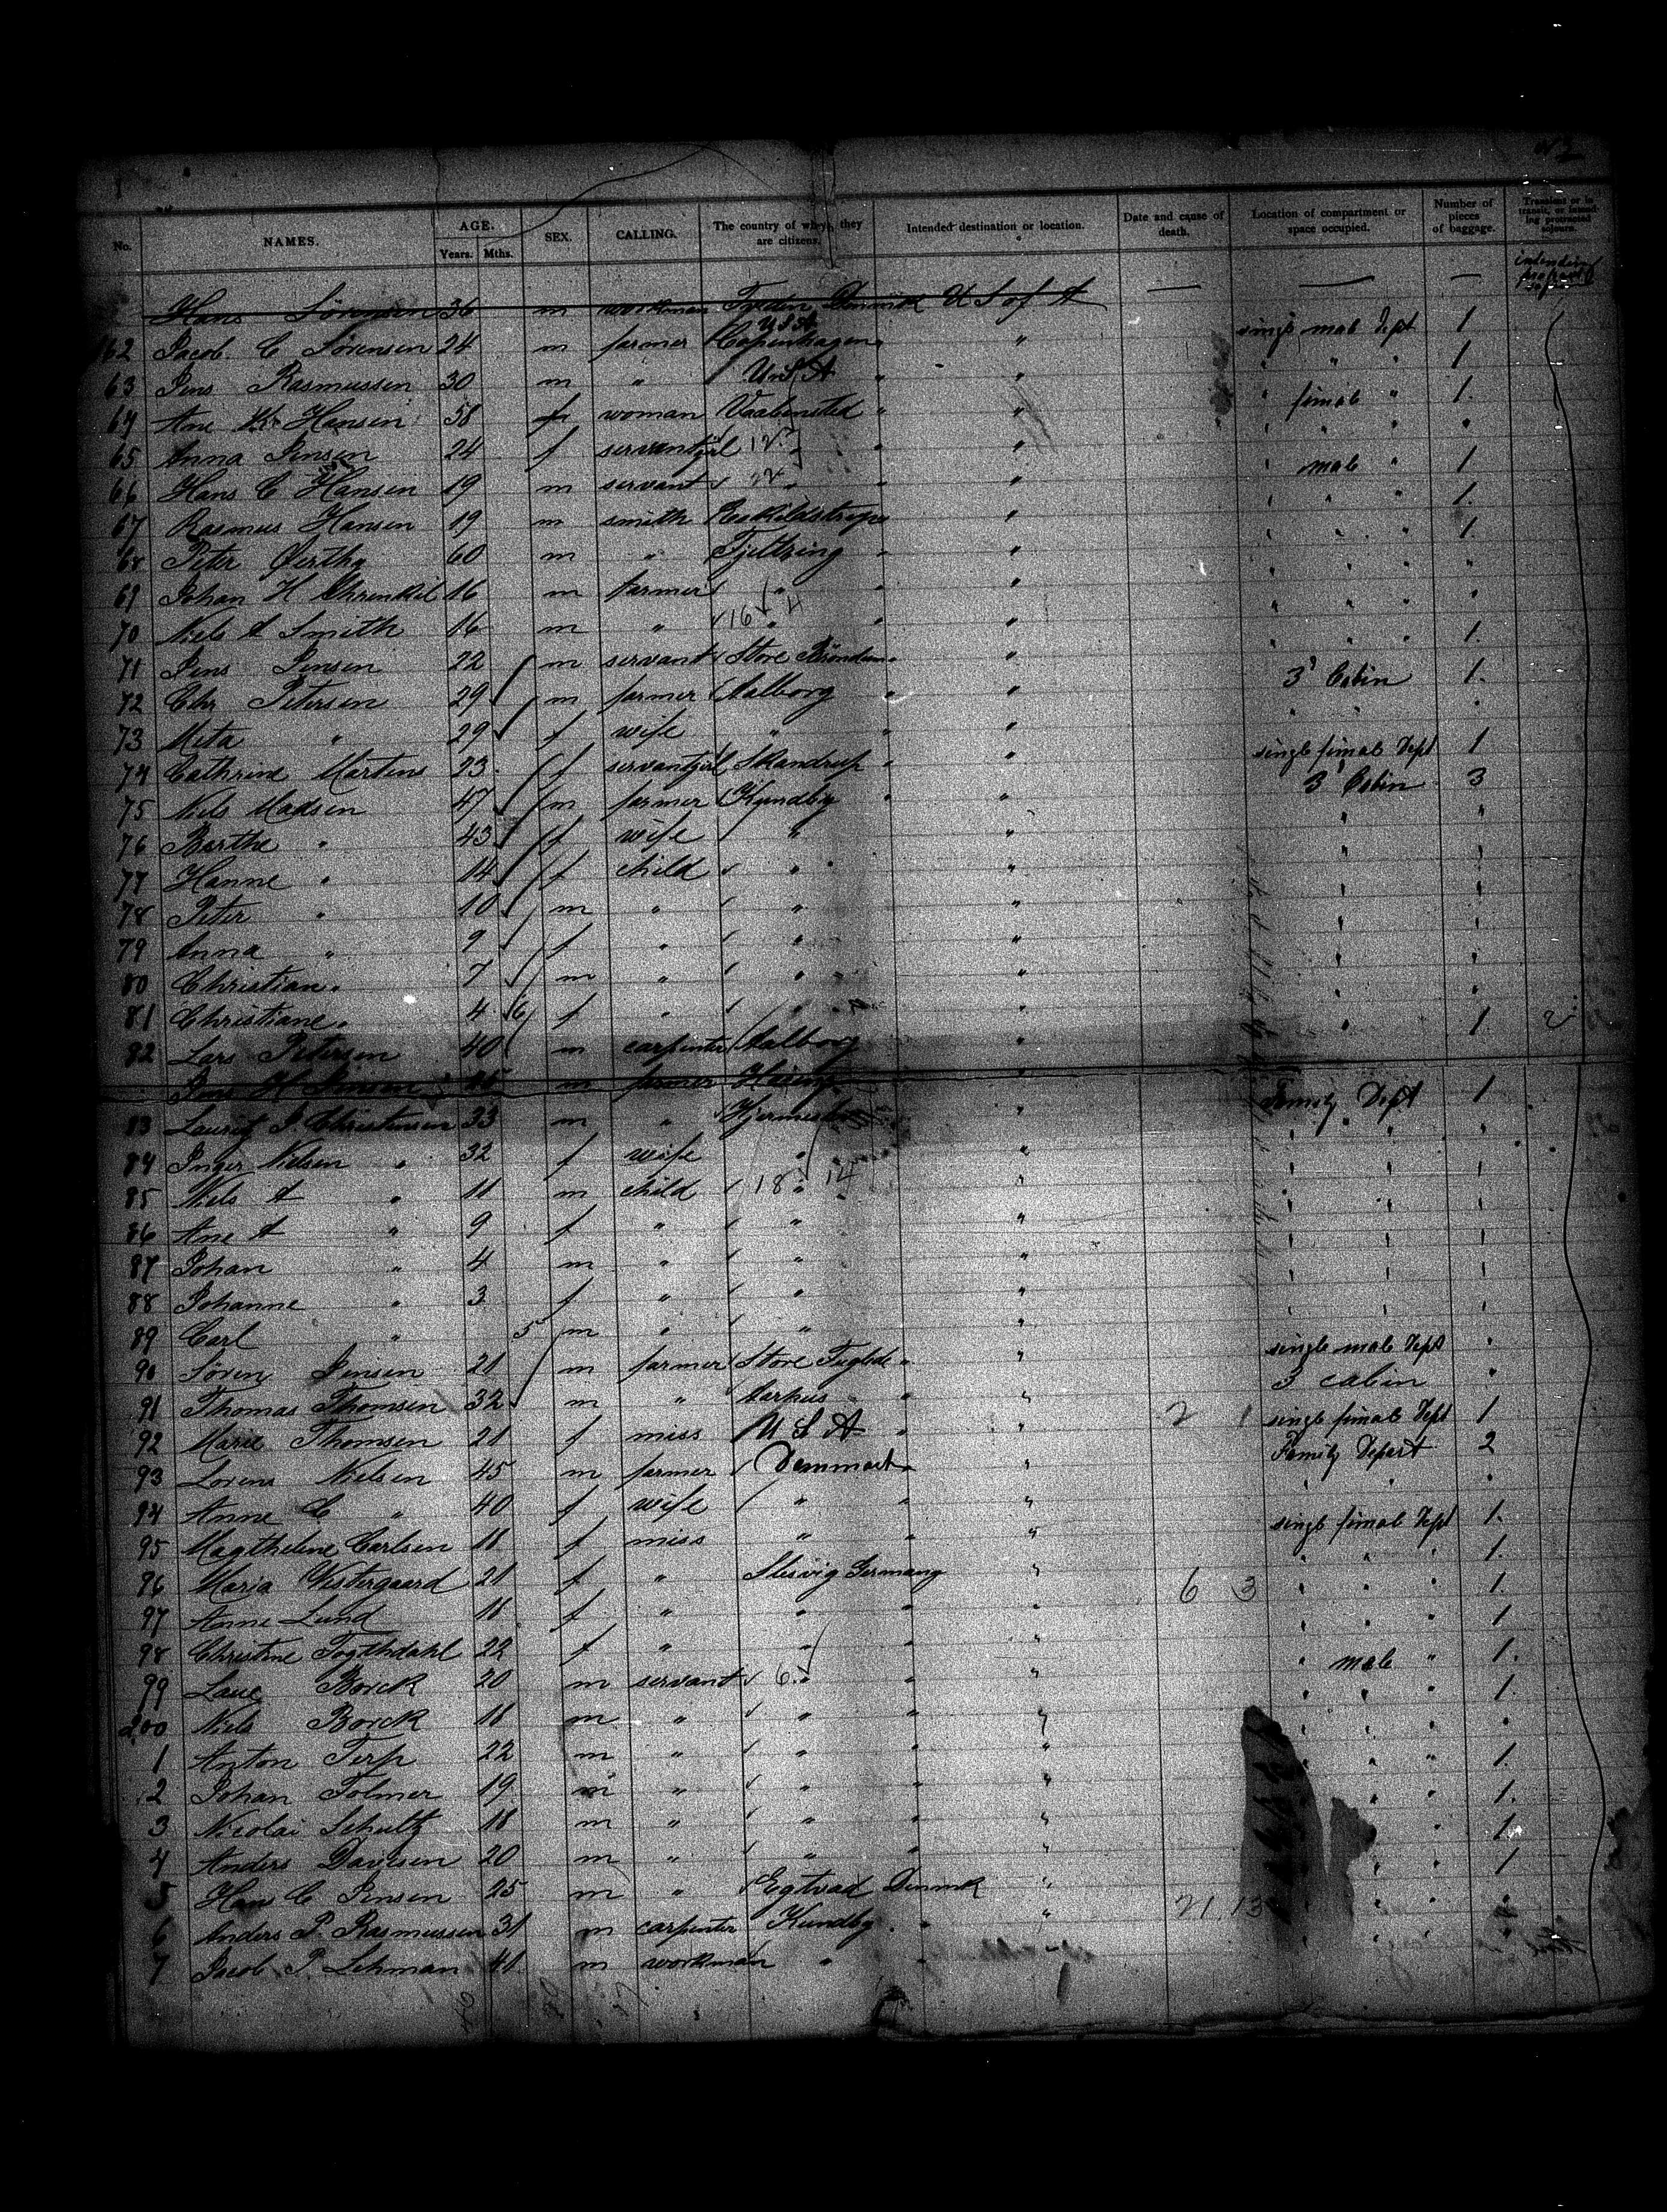 No. NAMES. AGE. Years. Mths. SEX. CALLING. The country of which they are citizens. Intended destination or location. Date and cause of death. Location of compartment or space occupied. Number of pieces of baggage. Transients or in transit, or intending protracted sojourn.
Hans Sörensen 36 m workman Denmark U S of A — — —
162 Jacob C Sörensen 24 m farmer U S A Copenhagen " " single male Dept 1
63 Jens Rasmussen 30 m " U S A " " " " " 1
64 Ane K Hansen 58 f woman " " " female " 1.
65 Anna Jensen 24 f servantgirl 12 " " " " " "
66 Hans C Hansen 19 m servant " " " " male " 1
67 Rasmus Hansen 19 m smith Eskildstrup " " " " " 1.
68 Peter 60 m " Fjeltring " " " " " 1.
69 Johan H 16 m farmer " " " " " " "
70 Niels A Smith 16 m " 16 4 " " " " " " "
71 Jens Jensen 22 m servant Store " " " " " 1.
72 Chr Petersen 29 m farmer Aalborg " " 3' Cabin 1.
73 Meta " 29 f wife " " " " " "
74 Cathrine Martens 23 f servantgirl Skandrup " " single female Dept 1
75 Niels Madsen 47 m farmer Kyndby " " 3' Cabin 3
76 Barthe " 43 f wife " " " "
77 Hanne " 14 f child " " " " "
78 Peter " 10 m " " " " "
79 Anna " 9 f " " " " "
80 Christian " 7 m " " " " "
81 Christiane " 4 6 f " " " " "
82 Lars Petersen 40 m carpenter Aalborg " " 1
Jens H Jensen 45 m farmer "
83 Lauritz P Christensen 33 m " " Family Dept 1
84 Inger Nielsen " 32 f wife " " " " "
85 Niels A " 11 m child 18 " 14 " " " "
86 Ane A " 9 f " " " " " "
87 Johan " 4 m " " " " " "
88 Johanne " 3 f " " " " " "
89 Carl " 5 m " " " " " "
90 Sören Jensen 21 m farmer Store Fuglede " " single male Dept "
91 Thomas Thomsen 32 m " Aarhus " " 3 cabin "
92 Marie Thomsen 21 f miss U S A " " 2 1 single female Dept 1
93 Lorens Nielsen 45 m farmer Denmark " " Family Depart 2
94 Anne C " 40 f wife " " " " " "
95 Magthelene Carlsen 18 f miss " " " single female Dept 1.
96 Maria Vestergaard 21 f " Slesvig Germany " " " " 1.
97 Anne Lund 18 f " " " " 6 3 " " " 1.
98 Christine 22 f " " " " " " 1
99 Laue Borck 20 m servant 6 " " " " male " 1.
200 Niels Borck 18 m " " " " " " " 1.
1 Anton Terp 22 m " " " " " " "
2 Johan Tolmer 19 m " " " " " " 1.
3 Nicolai Schultz 18 m " " " " " " 1.
4 Anders 20 m " " " " " 1.
5 Hans C Jensen 25 m " Egtved Denmark " " " 1
6 Anders P Rasmussen 31 m carpenter Kundby " " 21 13 " " "
7 Jacob P Lehman 41 m workman " " " " " "